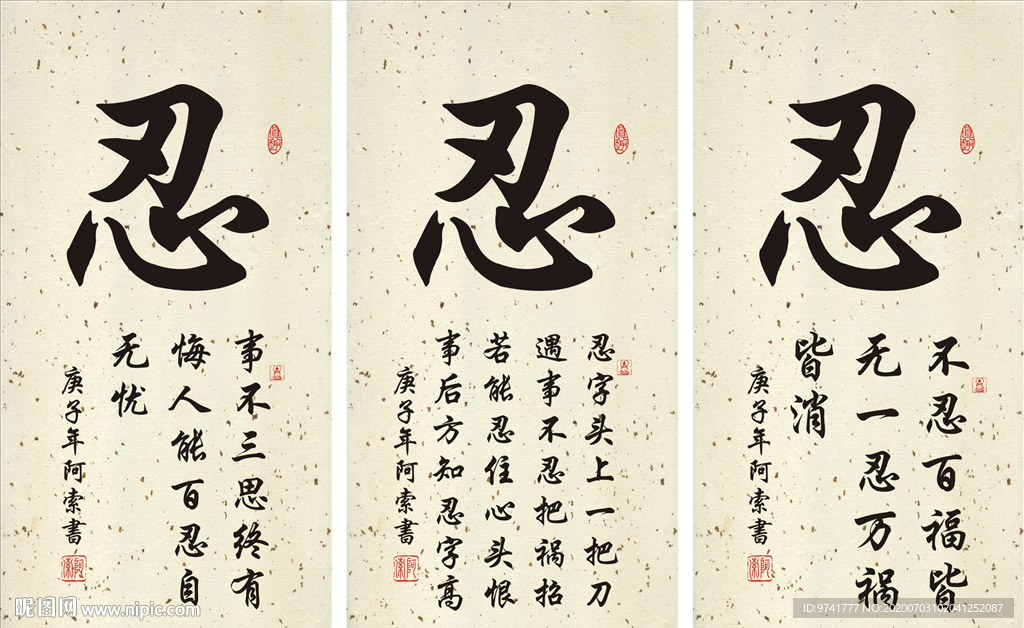 忍
事不三思终有
悔人能百忍自
无忧
庚子年阿索書
忍
忍字头上一把刀
遇事不忍把祸招
若能忍住心头恨
事后方知忍字高
庚子年阿索書
忍
不忍百福皆
无一忍万祸
皆消
庚子年阿索書
昵图网 www.nipic.com
ID:9741777 NO:20200703102041252087